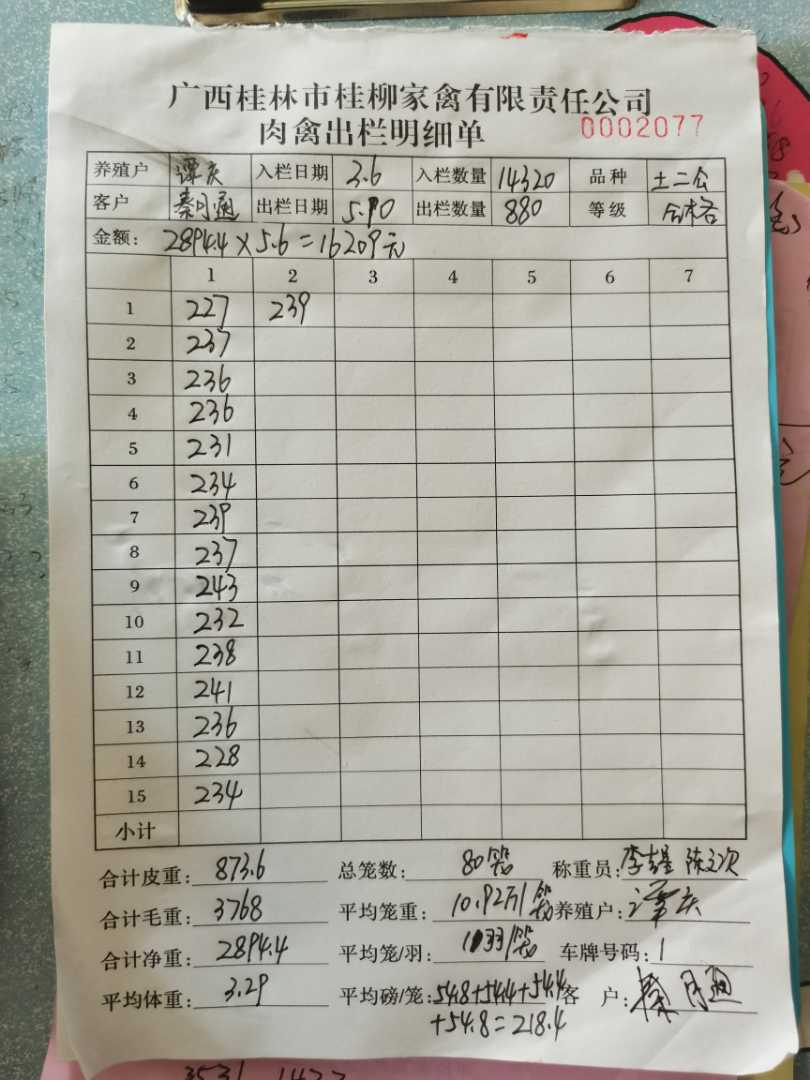 广西桂林市桂柳家禽有限责任公司
肉禽出栏明细单
0002077
养殖户 谭庆 入栏日期 3.6 入栏数量 14320 品种 土二公
客户 秦月通 出栏日期 5.10 出栏数量 880 等级 合格
金额: 2894.4×5.6=16209元
1 2 3 4 5 6 7
1 227 239
2 237
3 236
4 236
5 231
6 234
7 239
8 237
9 243
10 232
11 238
12 241
13 236
14 228
15 234
小计
合计皮重: 873.6 总笼数: 80笼 称重员:
合计毛重: 3768 平均笼重: 10.92 养殖户: 谭庆
合计净重: 2894.4 平均笼/羽: 车牌号码:
平均体重: 3.29 平均磅/笼: 54.8+54.4+54.4 客户: 秦月通
+54.8=218.4
3531 1422